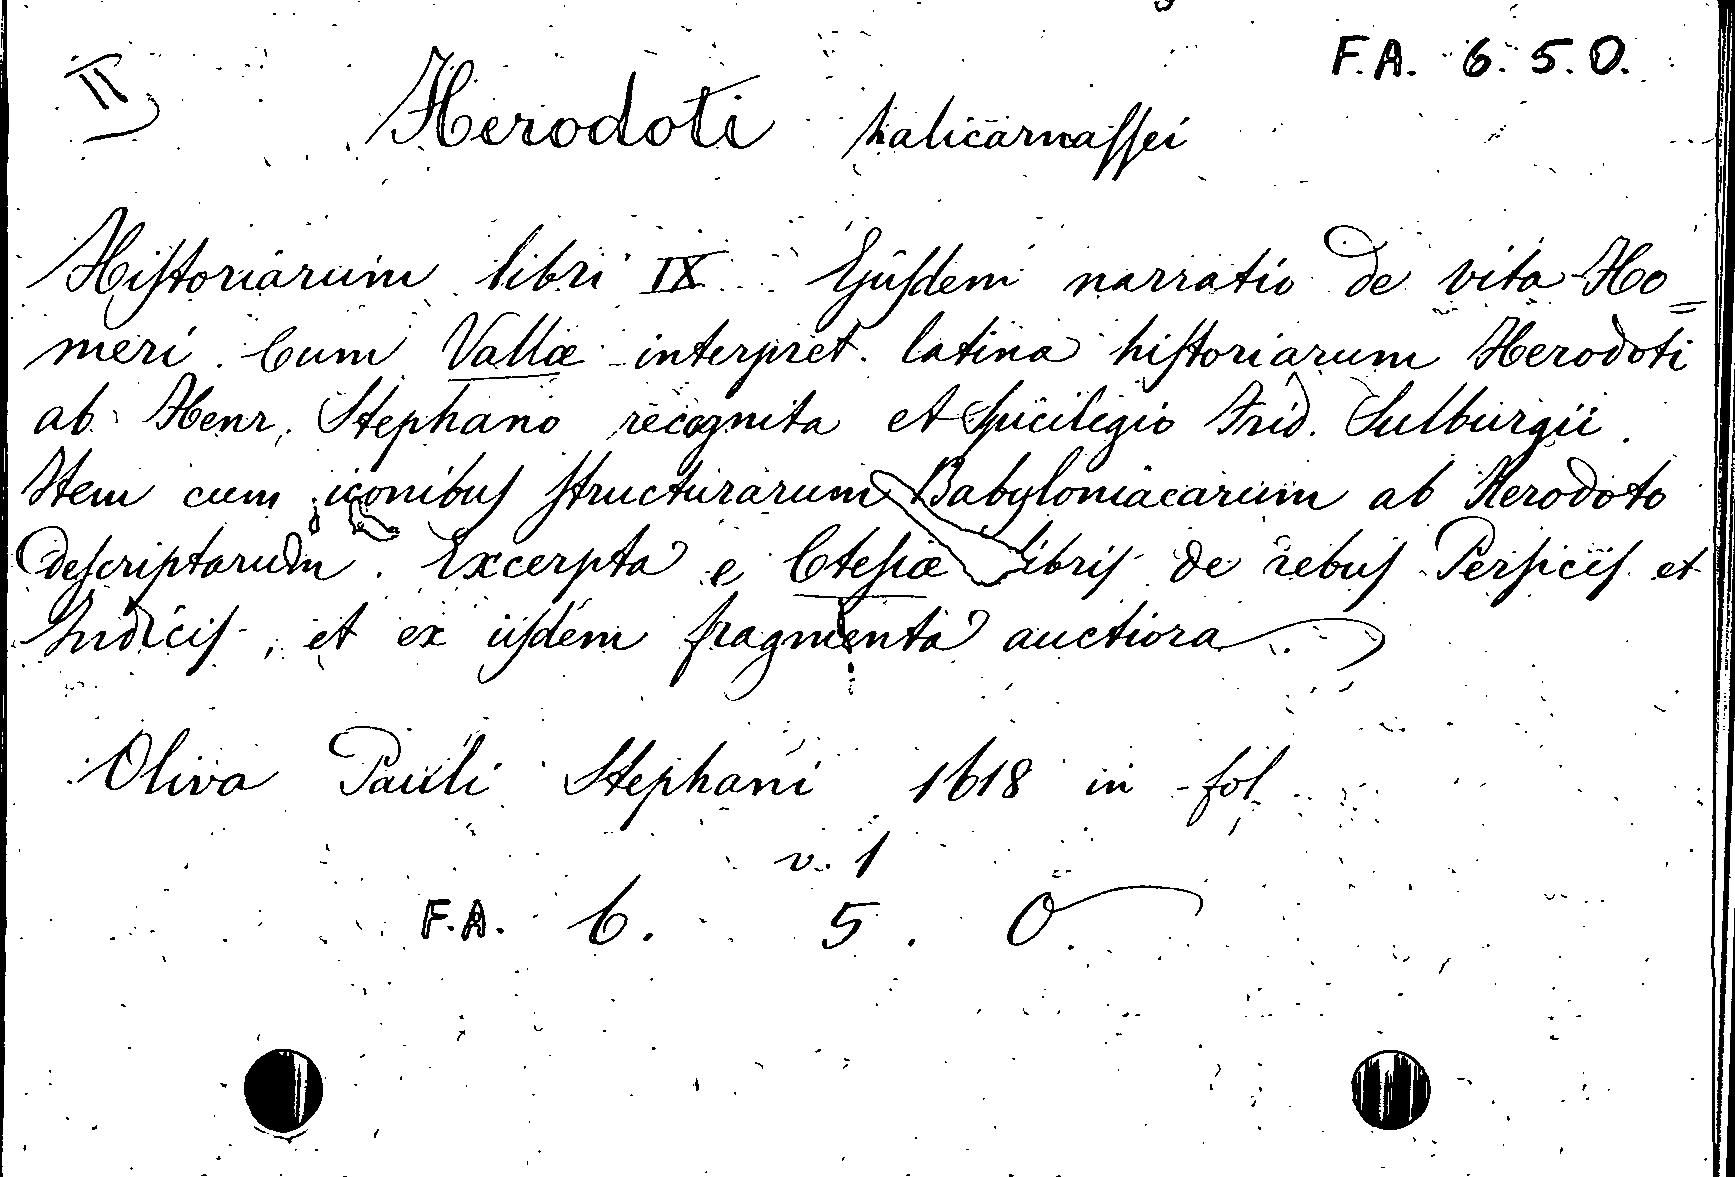 F.A. 6. 5. O.
II
Herodoti halicarnaſſei
Hiſtoriarum libri IX Ejuſdem narratio de vita Ho=
meri. Cum Vallæ interpret. latina hiſtoriarum Herodoti
ab Henr. Stephano recognita et ſpicilegio Frid. Sulburgii.
Item cum iconibuſ ſtructurarum Babyloniacarum ab Herodoto
deſcriptarum. Excerpta e Cteſiæ libriſ de rebuſ Perſiciſ et
Indiciſ, et ex iiſdem fragmenta auctiora.
Oliva Pauli Stephani 1618 in fol.
v. 1
F.A. 6. 5. O.